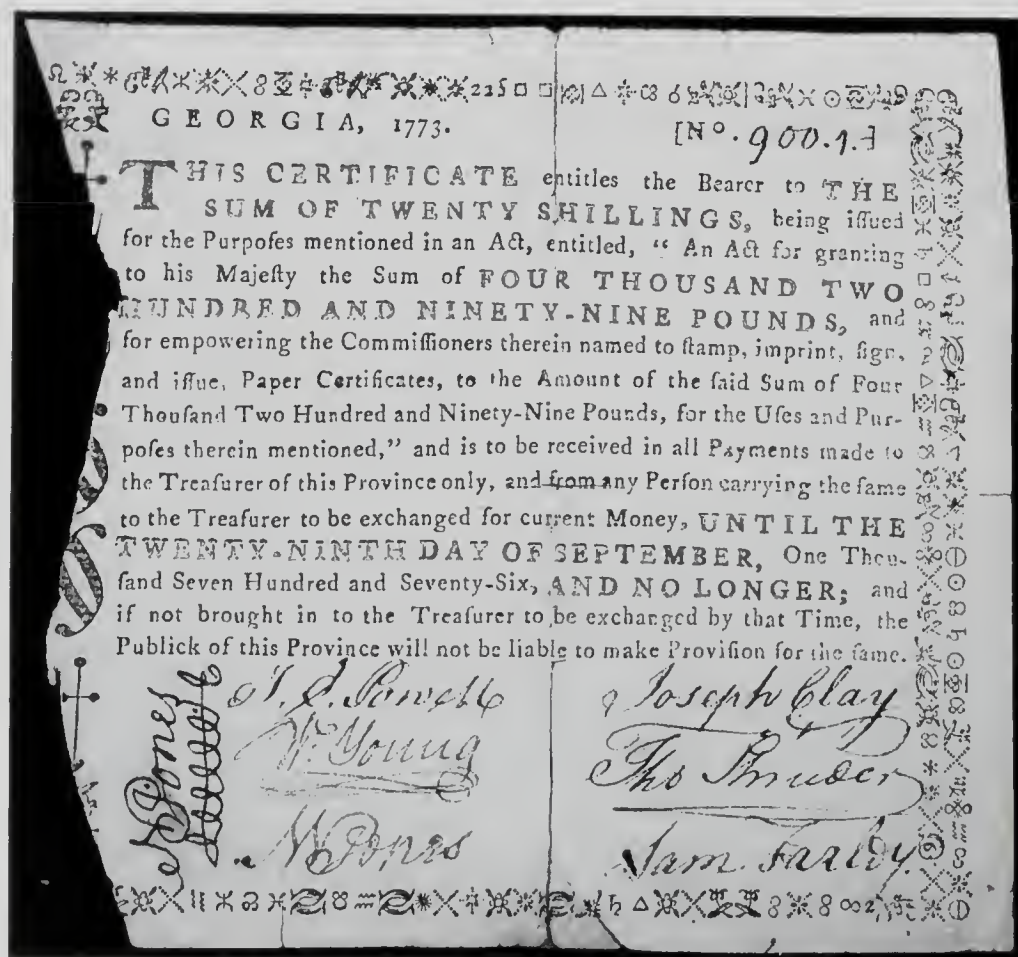 GEORGIA, 1773.
[No. 900.1.]
THIS CERTIFICATE entitles the Bearer to THE
SUM OF TWENTY SHILLINGS, being iſſued
for the Purpoſes mentioned in an Act, entitled, “ An Act for granting
to his Majeſty the Sum of FOUR THOUSAND TWO
HUNDRED AND NINETY-NINE POUNDS, and
for empowering the Commiſſioners therein named to ſtamp, imprint, ſign,
and iſſue, Paper Certificates, to the Amount of the ſaid Sum of Four
Thouſand Two Hundred and Ninety-Nine Pounds, for the Uſes and Pur-
poſes therein mentioned,” and is to be received in all Payments made to
the Treaſurer of this Province only, and from any Perſon carrying the ſame
to the Treaſurer to be exchanged for current Money, UNTIL THE
TWENTY-NINTH DAY OF SEPTEMBER, One Thou-
ſand Seven Hundred and Seventy-Six, AND NO LONGER; and
if not brought in to the Treaſurer to be exchanged by that Time, the
Publick of this Province will not be liable to make Proviſion for the ſame.
Joseph Clay
W. Young
N Jones
Sam. Farley